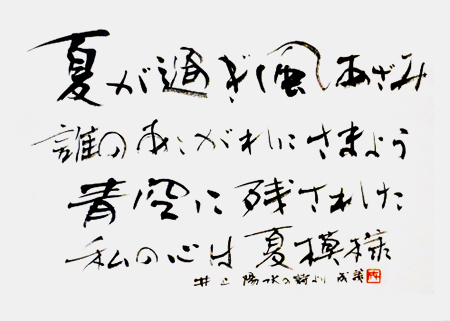 夏が過ぎ風あざみ
誰のあこがれにさまよう
青空に残された
私の心は夏模様
井上陽水の詩より 成美